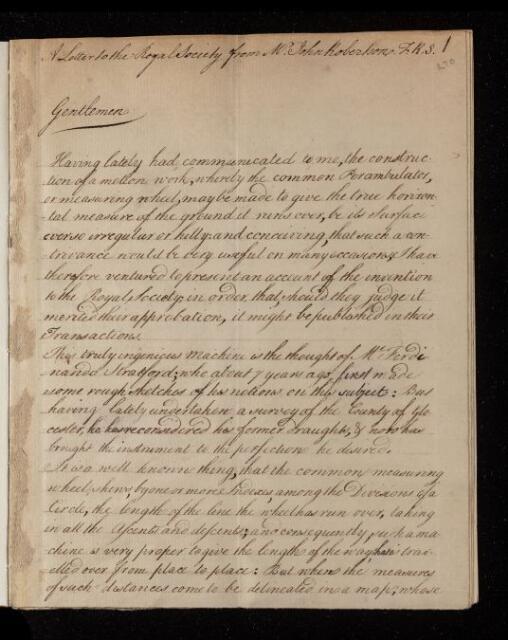 A Letter to the Royal Society from Mr. John Robertson F.R.S. 1
Gentlemen
Having lately had communicated to me, the construc-
tion of a motion work, whereby the common Perambulator,
or measuring wheel, may be made to give the true horizon-
tal measure of the ground it runs over, be its surface
ever so irregular or hilly: and conceiving, that such a con-
trivance would be very useful on many occasions, I have
therefore ventured to present an account of the invention
to the Royal Society; in order, that, should they judge it
merited their approbation, it might be published in their
Transactions.
This truly ingenious Machine is the thought of Mr. Ferdi
nando Stratford; who about 7 years ago, first made
some rough sketches of his notions on this subject: But
having lately undertaken a survey of the County of Glo
cester, he has reconsidered his former draughts, & now has
brought the instrument to the perfection he desired.
It is a well known thing, that the common measuring
wheel, shews, by one or more Indexes, among the Divisions of a
Circle, the length of the line the wheel has run over, taking
in all the Ascents and descents; and consequently such a ma-
chine is very proper to give the lengths of the way tra-
elled over from place to place: But when the measures
of such distances come to be delineated in a map, whose